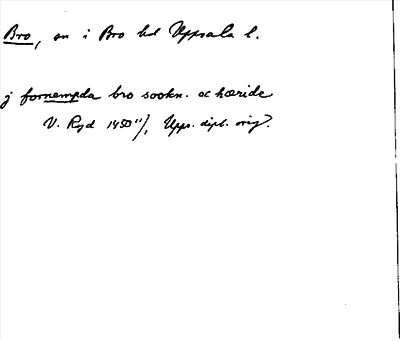 Bro, sn i Bro hd Uppsala l.
j fornempda bro sookn. oc hæride
V. Ryd 1450 11/1, Upps. dipl. orig.